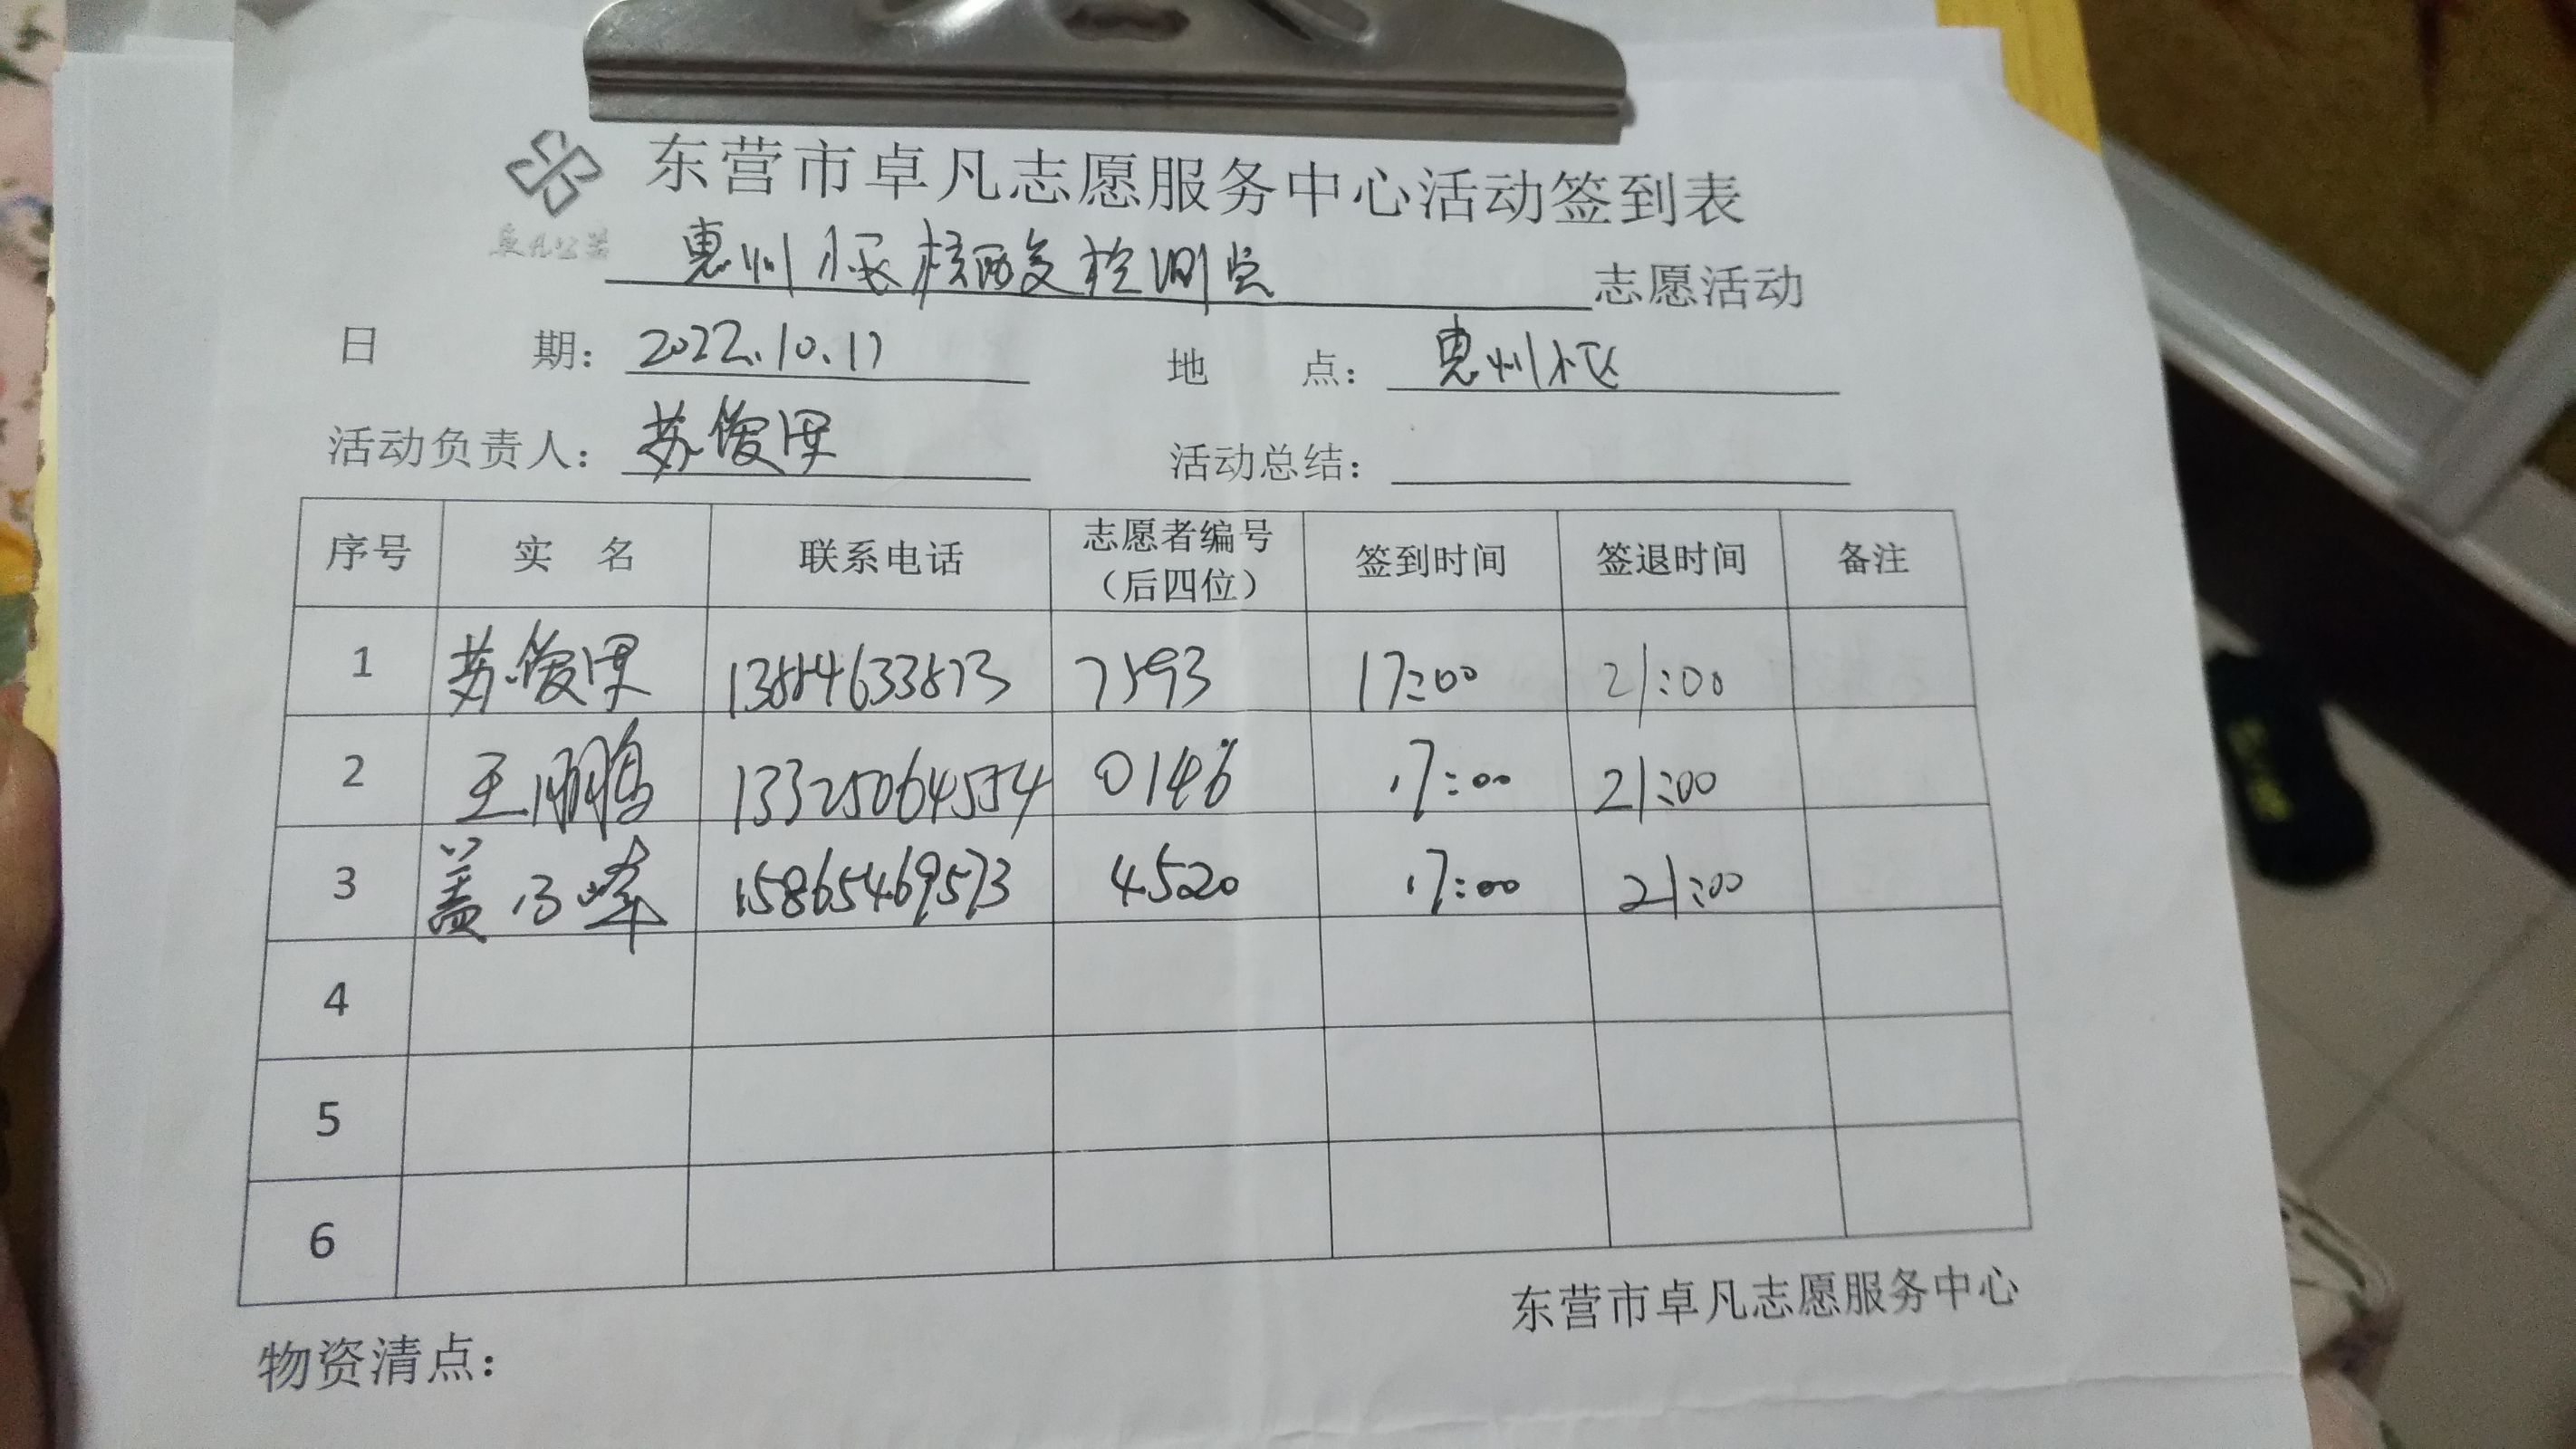 东营市卓凡志愿服务中心活动签到表
卓凡公益
惠州 核酸检测点 志愿活动
日 期：2022.10.17 地 点：惠州
活动负责人：苏俊 活动总结：
序号 实 名 联系电话 志愿者编号（后四位） 签到时间 签退时间 备注
1 苏俊 13884633873 7593 17:00 21:00
2 王鹏 13325064554 0146 17:00 21:00
3 盖 峰 15865469573 4520 17:00 21:00
4
5
6
东营市卓凡志愿服务中心
物资清点：